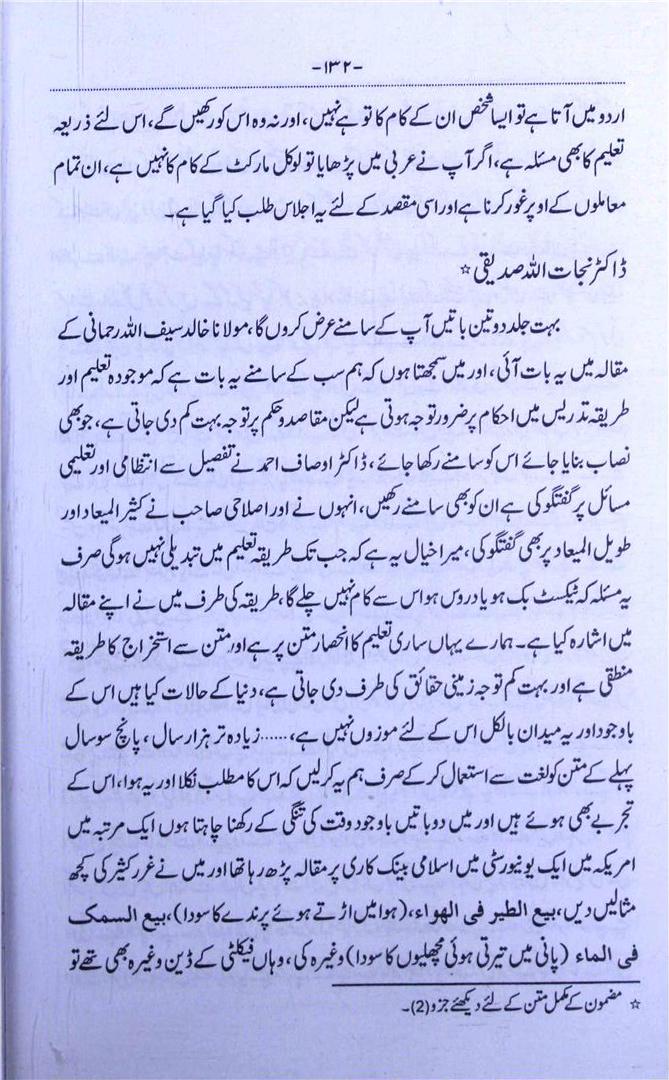 -۱۳۲-
اردو میں آتا ہے تو ایسا شخص ان کے کام کا تو ہے نہیں، اور نہ وہ اس کو رکھیں گے، اس لئے ذریعہ
تعلیم کا بھی مسئلہ ہے، اگر آپ نے عربی میں پڑھایا تو لوکل مارکٹ کے کام کا نہیں ہے، ان تمام
معاملوں کے اوپر غور کرنا ہے اور اسی مقصد کے لئے یہ اجلاس طلب کیا گیا ہے۔
ڈاکٹر نجات اللہ صدیقی ☆
بہت جلد دو تین باتیں آپ کے سامنے عرض کروں گا، مولانا خالد سیف اللہ رحمانی کے
مقالہ میں یہ بات آئی، اور میں سمجھتا ہوں کہ ہم سب کے سامنے یہ بات ہے کہ موجودہ تعلیم اور
طریقہ تدریس میں احکام پر ضرور توجہ ہوتی ہے لیکن مقاصد و حکم پر توجہ بہت کم دی جاتی ہے، جو بھی
نصاب بنایا جائے اس کو سامنے رکھا جائے، ڈاکٹر اوصاف احمد نے تفصیل سے انتظامی اور تعلیمی
مسائل پر گفتگو کی ہے ان کو بھی سامنے رکھیں، انہوں نے اور اصلاحی صاحب نے کثیر المیعاد اور
طویل المیعاد پر بھی گفتگو کی، میرا خیال یہ ہے کہ جب تک طریقہ تعلیم میں تبدیلی نہیں ہوگی صرف
یہ مسئلہ کہ ٹیکسٹ بک ہو یا دروس ہو اس سے کام نہیں چلے گا، طریقہ کی طرف میں نے اپنے مقالہ
میں اشارہ کیا ہے۔ ہمارے یہاں ساری تعلیم کا انحصار متن پر ہے اور متن سے استخراج کا طریقہ
منطقی ہے اور بہت کم توجہ زمینی حقائق کی طرف دی جاتی ہے، دنیا کے حالات کیا ہیں اس کے
باوجود اور یہ میدان بالکل اس کے لئے موزوں نہیں ہے، ......زیادہ تر ہزار سال، پانچ سو سال
پہلے کے متن کو لغت سے استعمال کر کے صرف ہم یہ کر لیں کہ اس کا مطلب نکلا اور یہ ہوا، اس کے
تجربے بھی ہوئے ہیں اور میں دو باتیں باوجود وقت کی تنگی کے رکھنا چاہتا ہوں ایک مرتبہ میں
امریکہ میں ایک یونیورسٹی میں اسلامی بینک کاری پر مقالہ پڑھ رہا تھا اور میں نے غرر کثیر کی کچھ
مثالیں دیں، بیع الطیر فی الهواء، (ہوا میں اڑتے ہوئے پرندے کا سودا)، بیع السمک
فی الماء (پانی میں تیرتی ہوئی مچھلیوں کا سودا) وغیرہ کی، وہاں فیکلٹی کے ڈین وغیرہ بھی تھے تو
☆ مضمون کے مکمل متن کے لئے دیکھئے جزو (2)۔